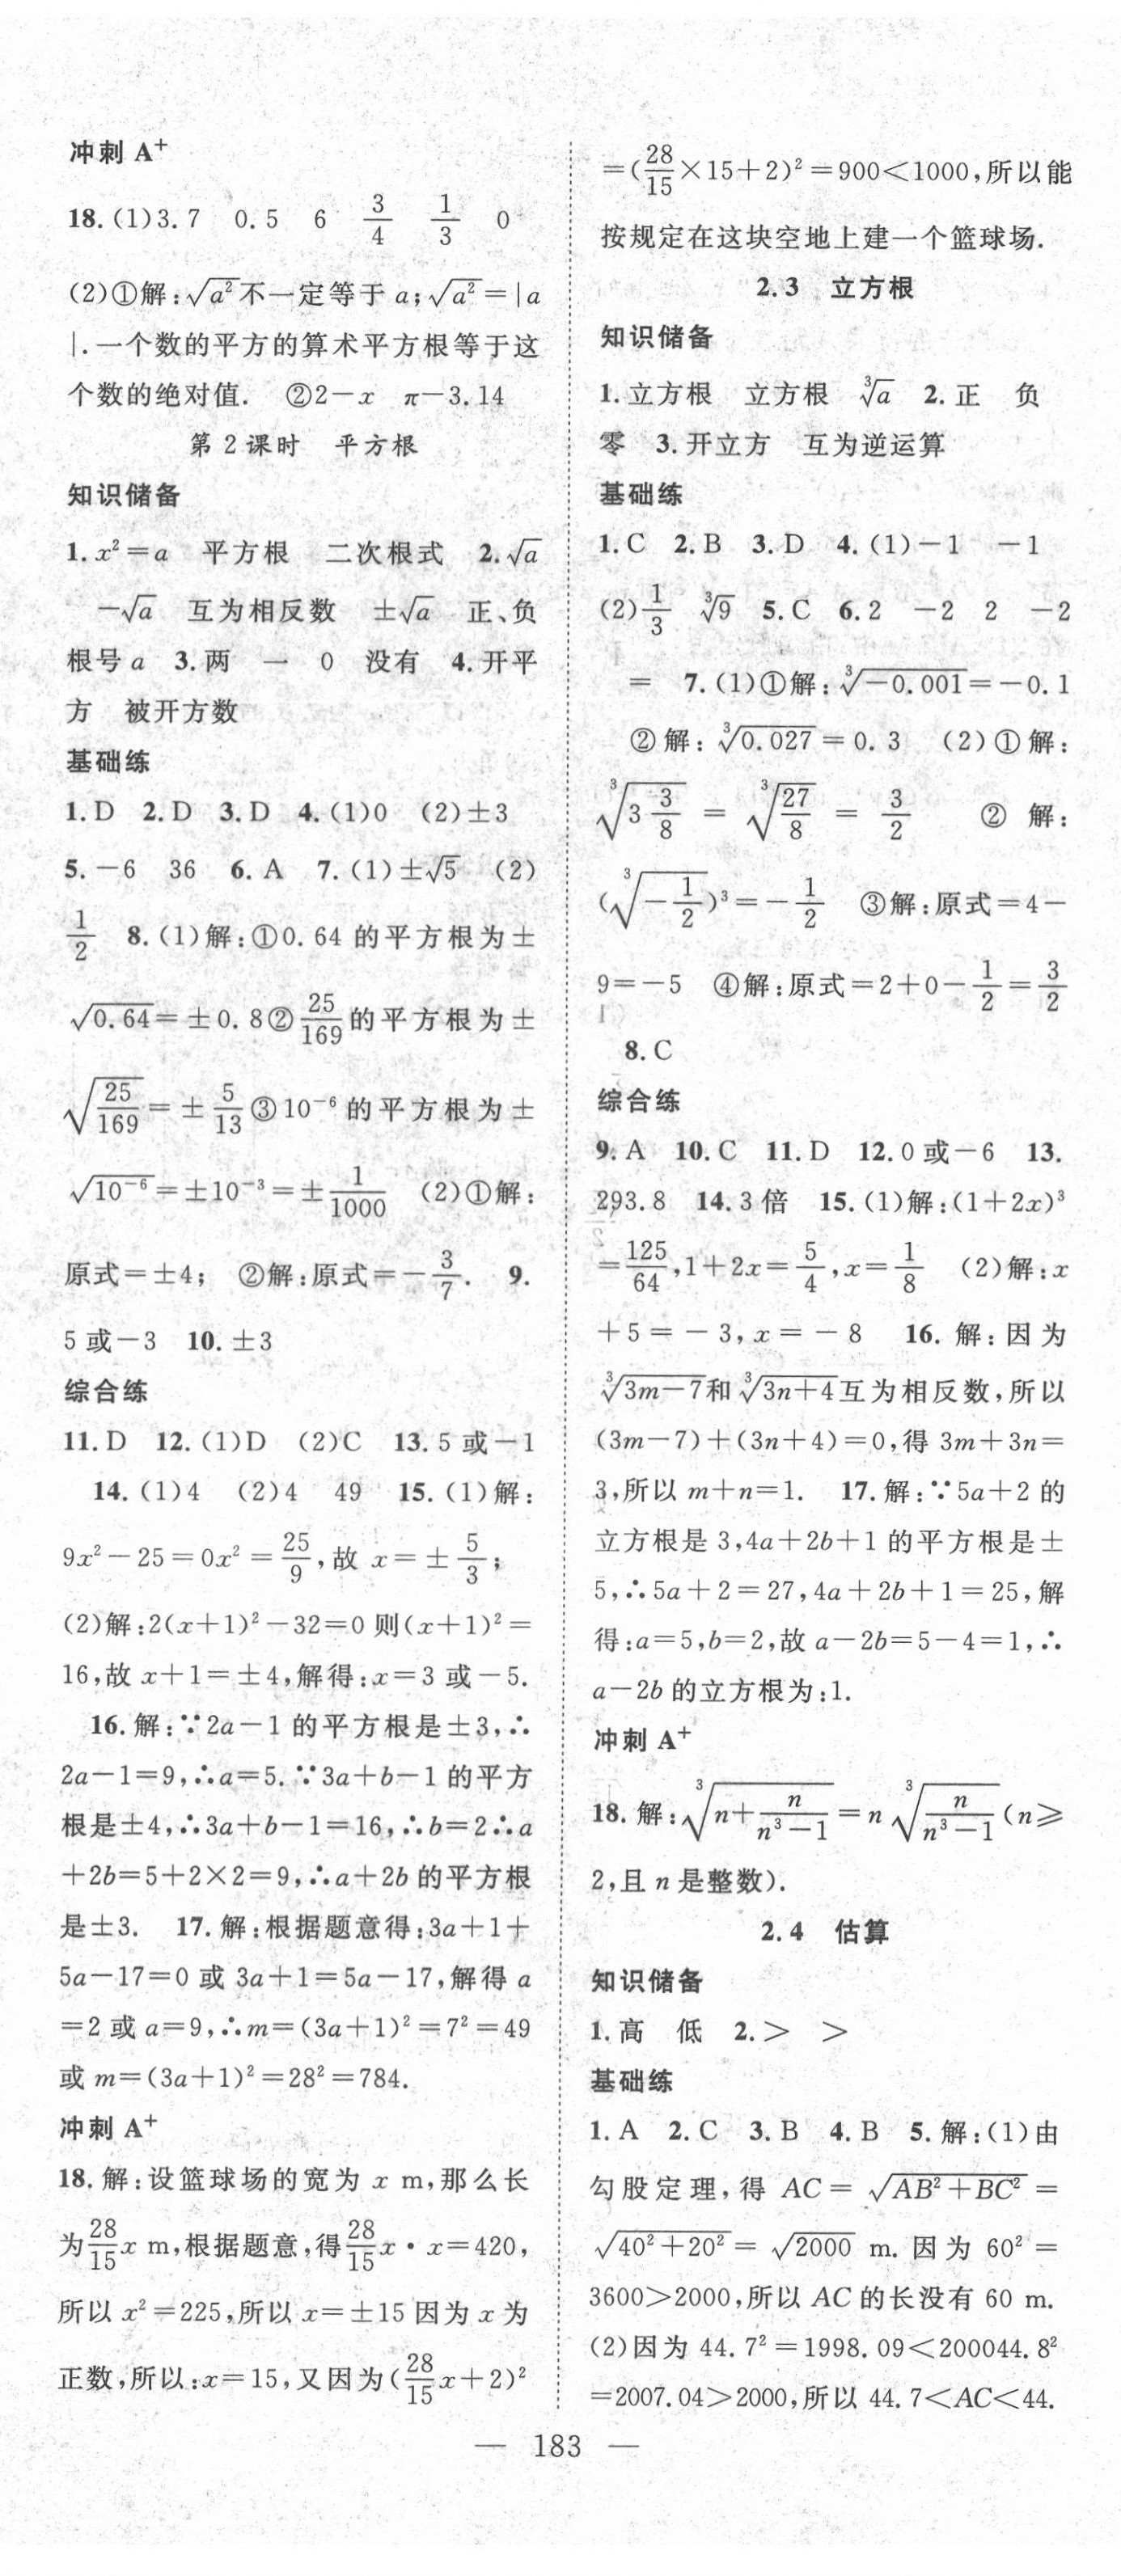 冲刺 A⁺
18.(1)3.7 0.5 6 3/4 1/3 0
(2)①解:√a²不一定等于 a;√a²=|a
|.一个数的平方的算术平方根等于这
个数的绝对值. ②2-x π-3.14
第 2 课时 平方根
知识储备
1.x²=a 平方根 二次根式 2.√a
-√a 互为相反数 ±√a 正、负
根号 a 3.两 一 0 没有 4.开平
方 被开方数
基础练
1.D 2.D 3.D 4.(1)0 (2)±3
5.-6 36 6.A 7.(1)±√5 (2)
1/2 8.(1)解:①0.64 的平方根为±
√0.64=±0.8②25/169的平方根为±
√(25/169)=±5/13③10⁻⁶的平方根为±
√10⁻⁶=±10⁻³=±1/1000 (2)①解:
原式=±4; ②解:原式=-3/7. 9.
5 或-3 10.±3
综合练
11.D 12.(1)D (2)C 13.5 或-1
14.(1)4 (2)4 49 15.(1)解:
9x²-25=0x²=25/9,故 x=±5/3;
(2)解:2(x+1)²-32=0 则(x+1)²=
16,故 x+1=±4,解得:x=3 或-5.
16.解:∵2a-1 的平方根是±3,∴
2a-1=9,∴a=5.∵3a+b-1 的平方
根是±4,∴3a+b-1=16,∴b=2∴a
+2b=5+2×2=9,∴a+2b 的平方根
是±3. 17.解:根据题意得:3a+1+
5a-17=0 或 3a+1=5a-17,解得 a
=2 或 a=9,∴m=(3a+1)²=7²=49
或 m=(3a+1)²=28²=784.
冲刺 A⁺
18.解:设篮球场的宽为 x m,那么长
为28/15x m,根据题意,得28/15x·x=420,
所以 x²=225,所以 x=±15 因为 x 为
正数,所以:x=15,又因为(28/15x+2)²
=(28/15×15+2)²=900<1000,所以能
按规定在这块空地上建一个篮球场.
2.3 立方根
知识储备
1.立方根 立方根 ∛a 2.正 负
零 3.开立方 互为逆运算
基础练
1.C 2.B 3.D 4.(1)-1 -1
(2)1/3 ∛9 5.C 6.2 -2 2 -2
= 7.(1)①解:∛-0.001=-0.1
②解:∛0.027=0.3 (2)①解:
∛(3 3/8)=∛(27/8)=3/2 ② 解:
(∛(-1/2))³=-1/2 ③解:原式=4-
9=-5 ④解:原式=2+0-1/2=3/2
8.C
综合练
9.A 10.C 11.D 12.0 或-6 13.
293.8 14.3 倍 15.(1)解:(1+2x)³
=125/64,1+2x=5/4,x=1/8 (2)解:x
+5=-3,x=-8 16. 解:因为
∛(3m-7)和∛(3n+4)互为相反数,所以
(3m-7)+(3n+4)=0,得 3m+3n=
3,所以 m+n=1. 17.解:∵5a+2 的
立方根是 3,4a+2b+1 的平方根是±
5,∴5a+2=27,4a+2b+1=25,解
得:a=5,b=2,故 a-2b=5-4=1,∴
a-2b 的立方根为:1.
冲刺 A⁺
18.解:∛(n+n/(n³-1))=n∛(n/(n³-1))(n≥
2,且 n 是整数).
2.4 估算
知识储备
1.高 低 2.> >
基础练
1.A 2.C 3.B 4.B 5.解:(1)由
勾股定理,得 AC=√(AB²+BC²)=
√(40²+20²)=√2000 m.因为 60²=
3600>2000,所以 AC 的长没有 60 m.
(2)因为 44.7²=1998.09<200044.8²
=2007.04>2000,所以 44.7<AC<44.
— 183 —